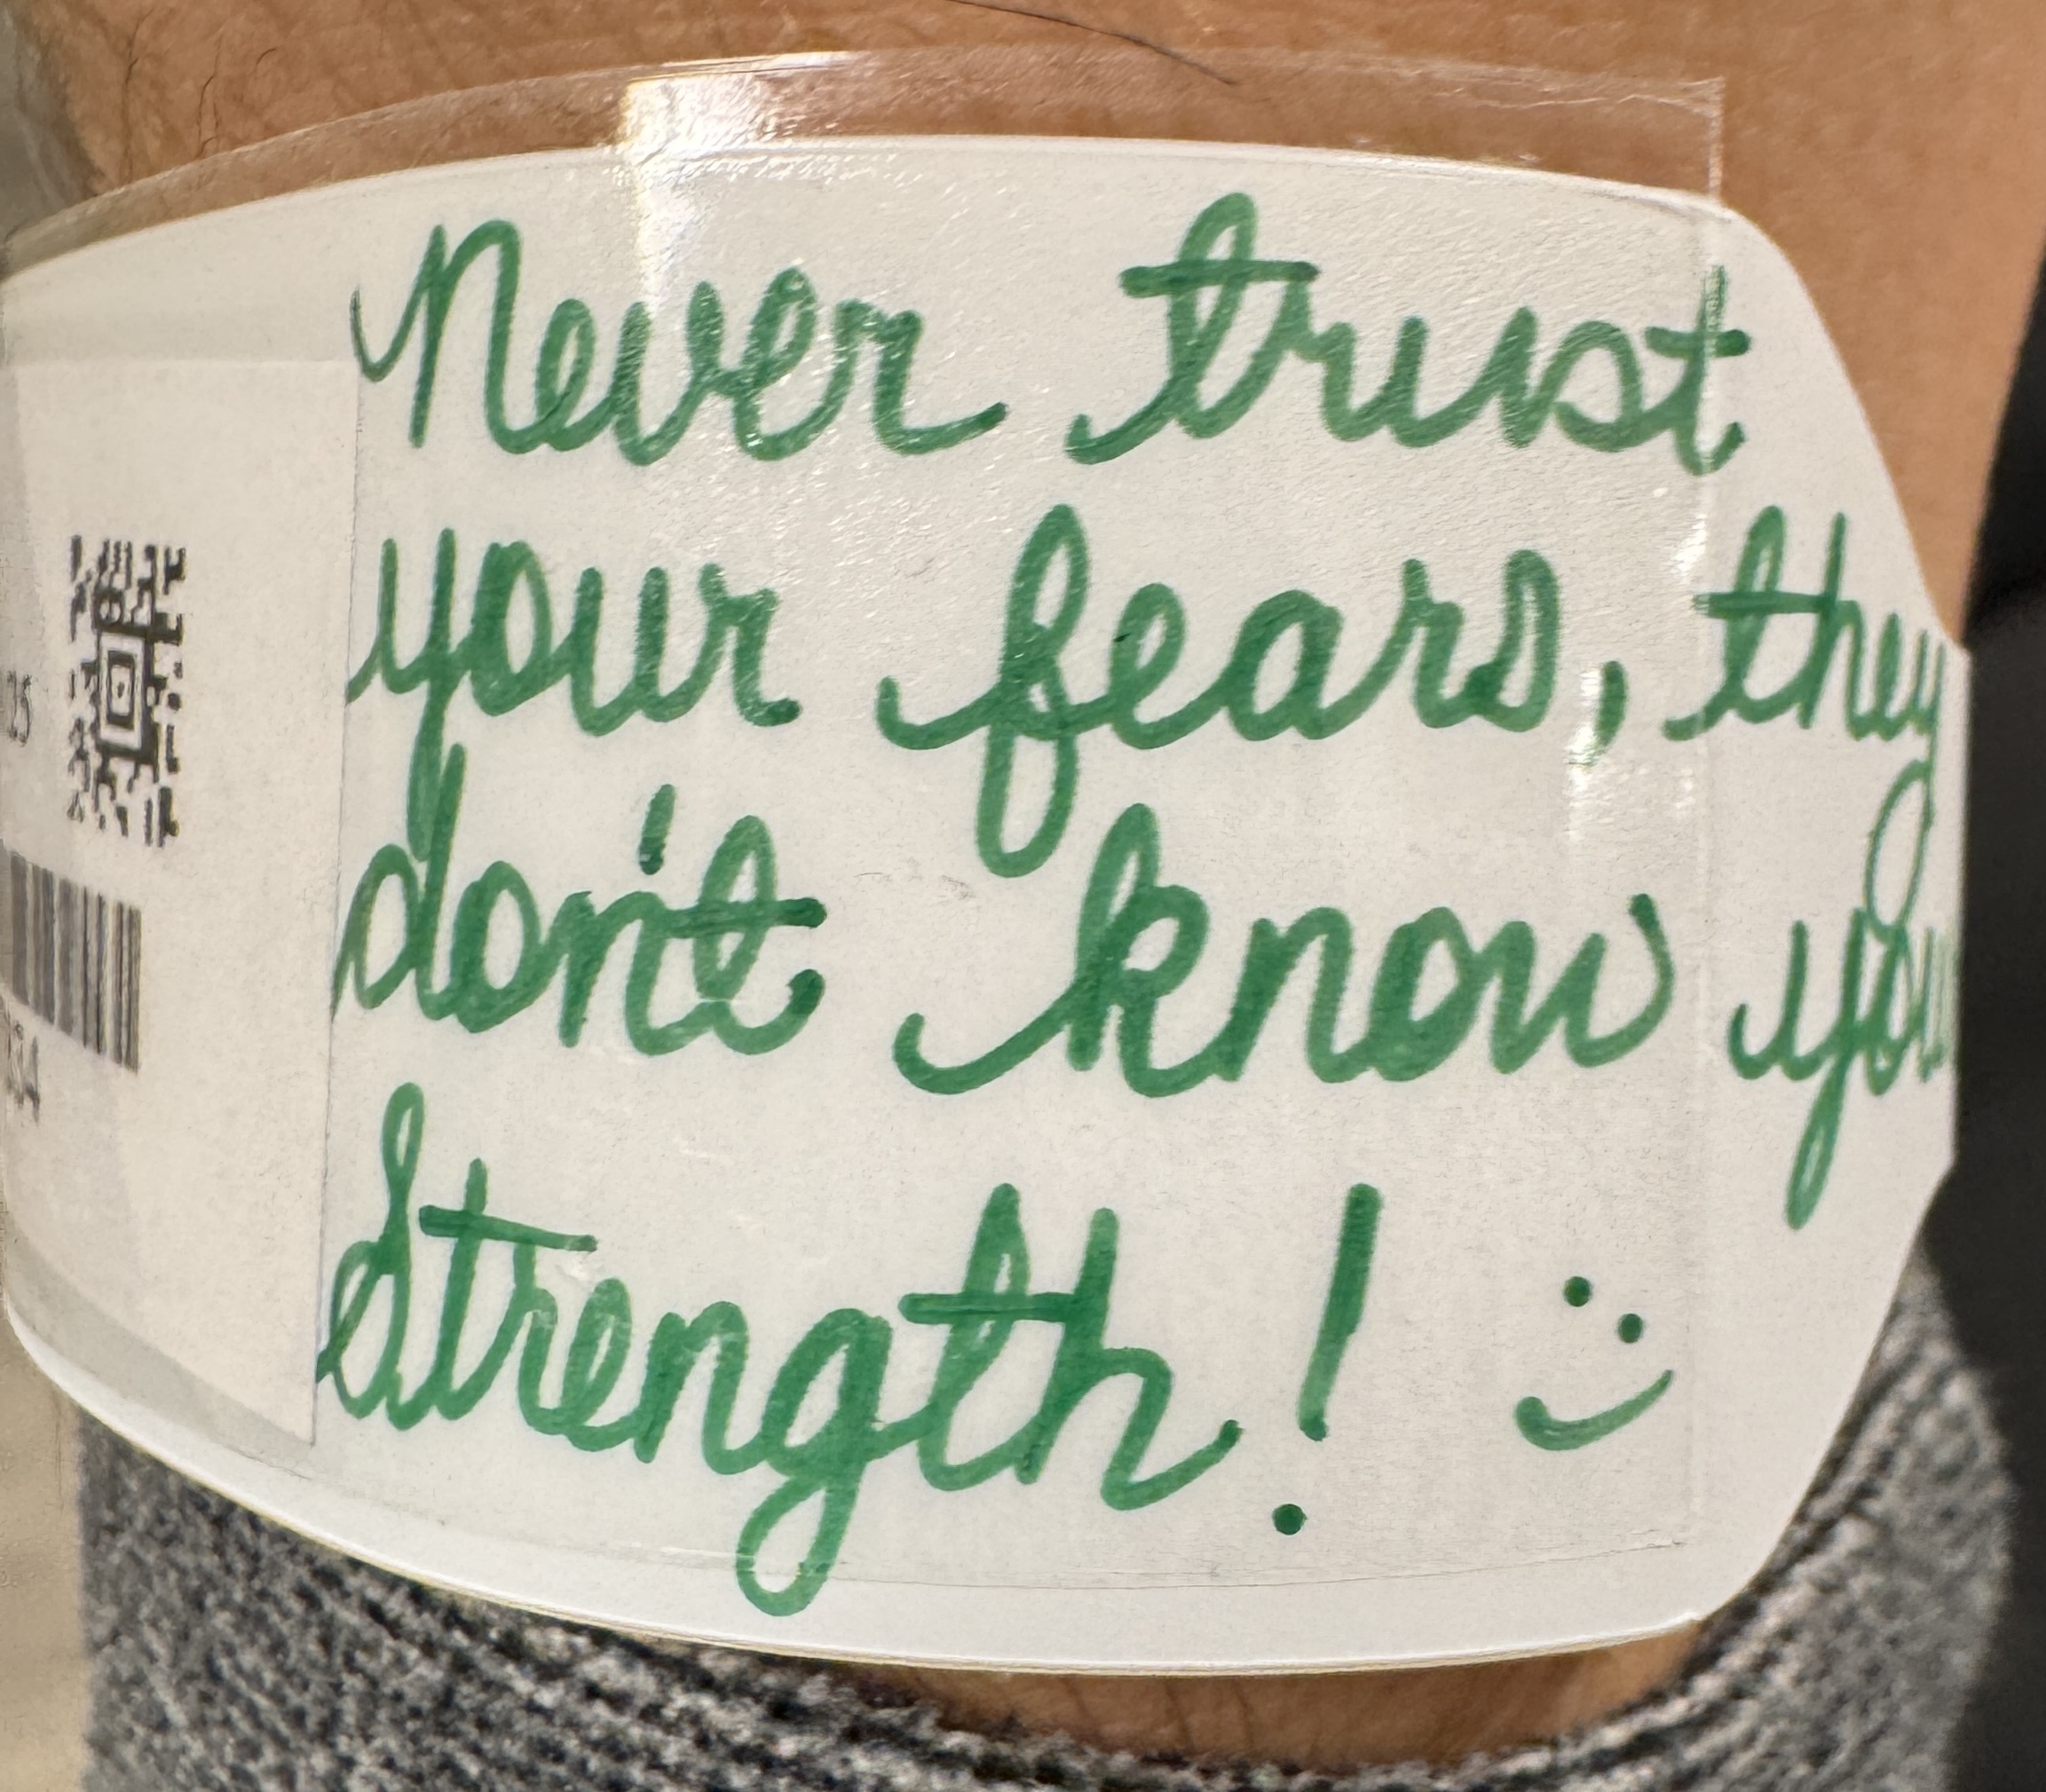 Never trust
your fears, they
don't know your
Strength! :)